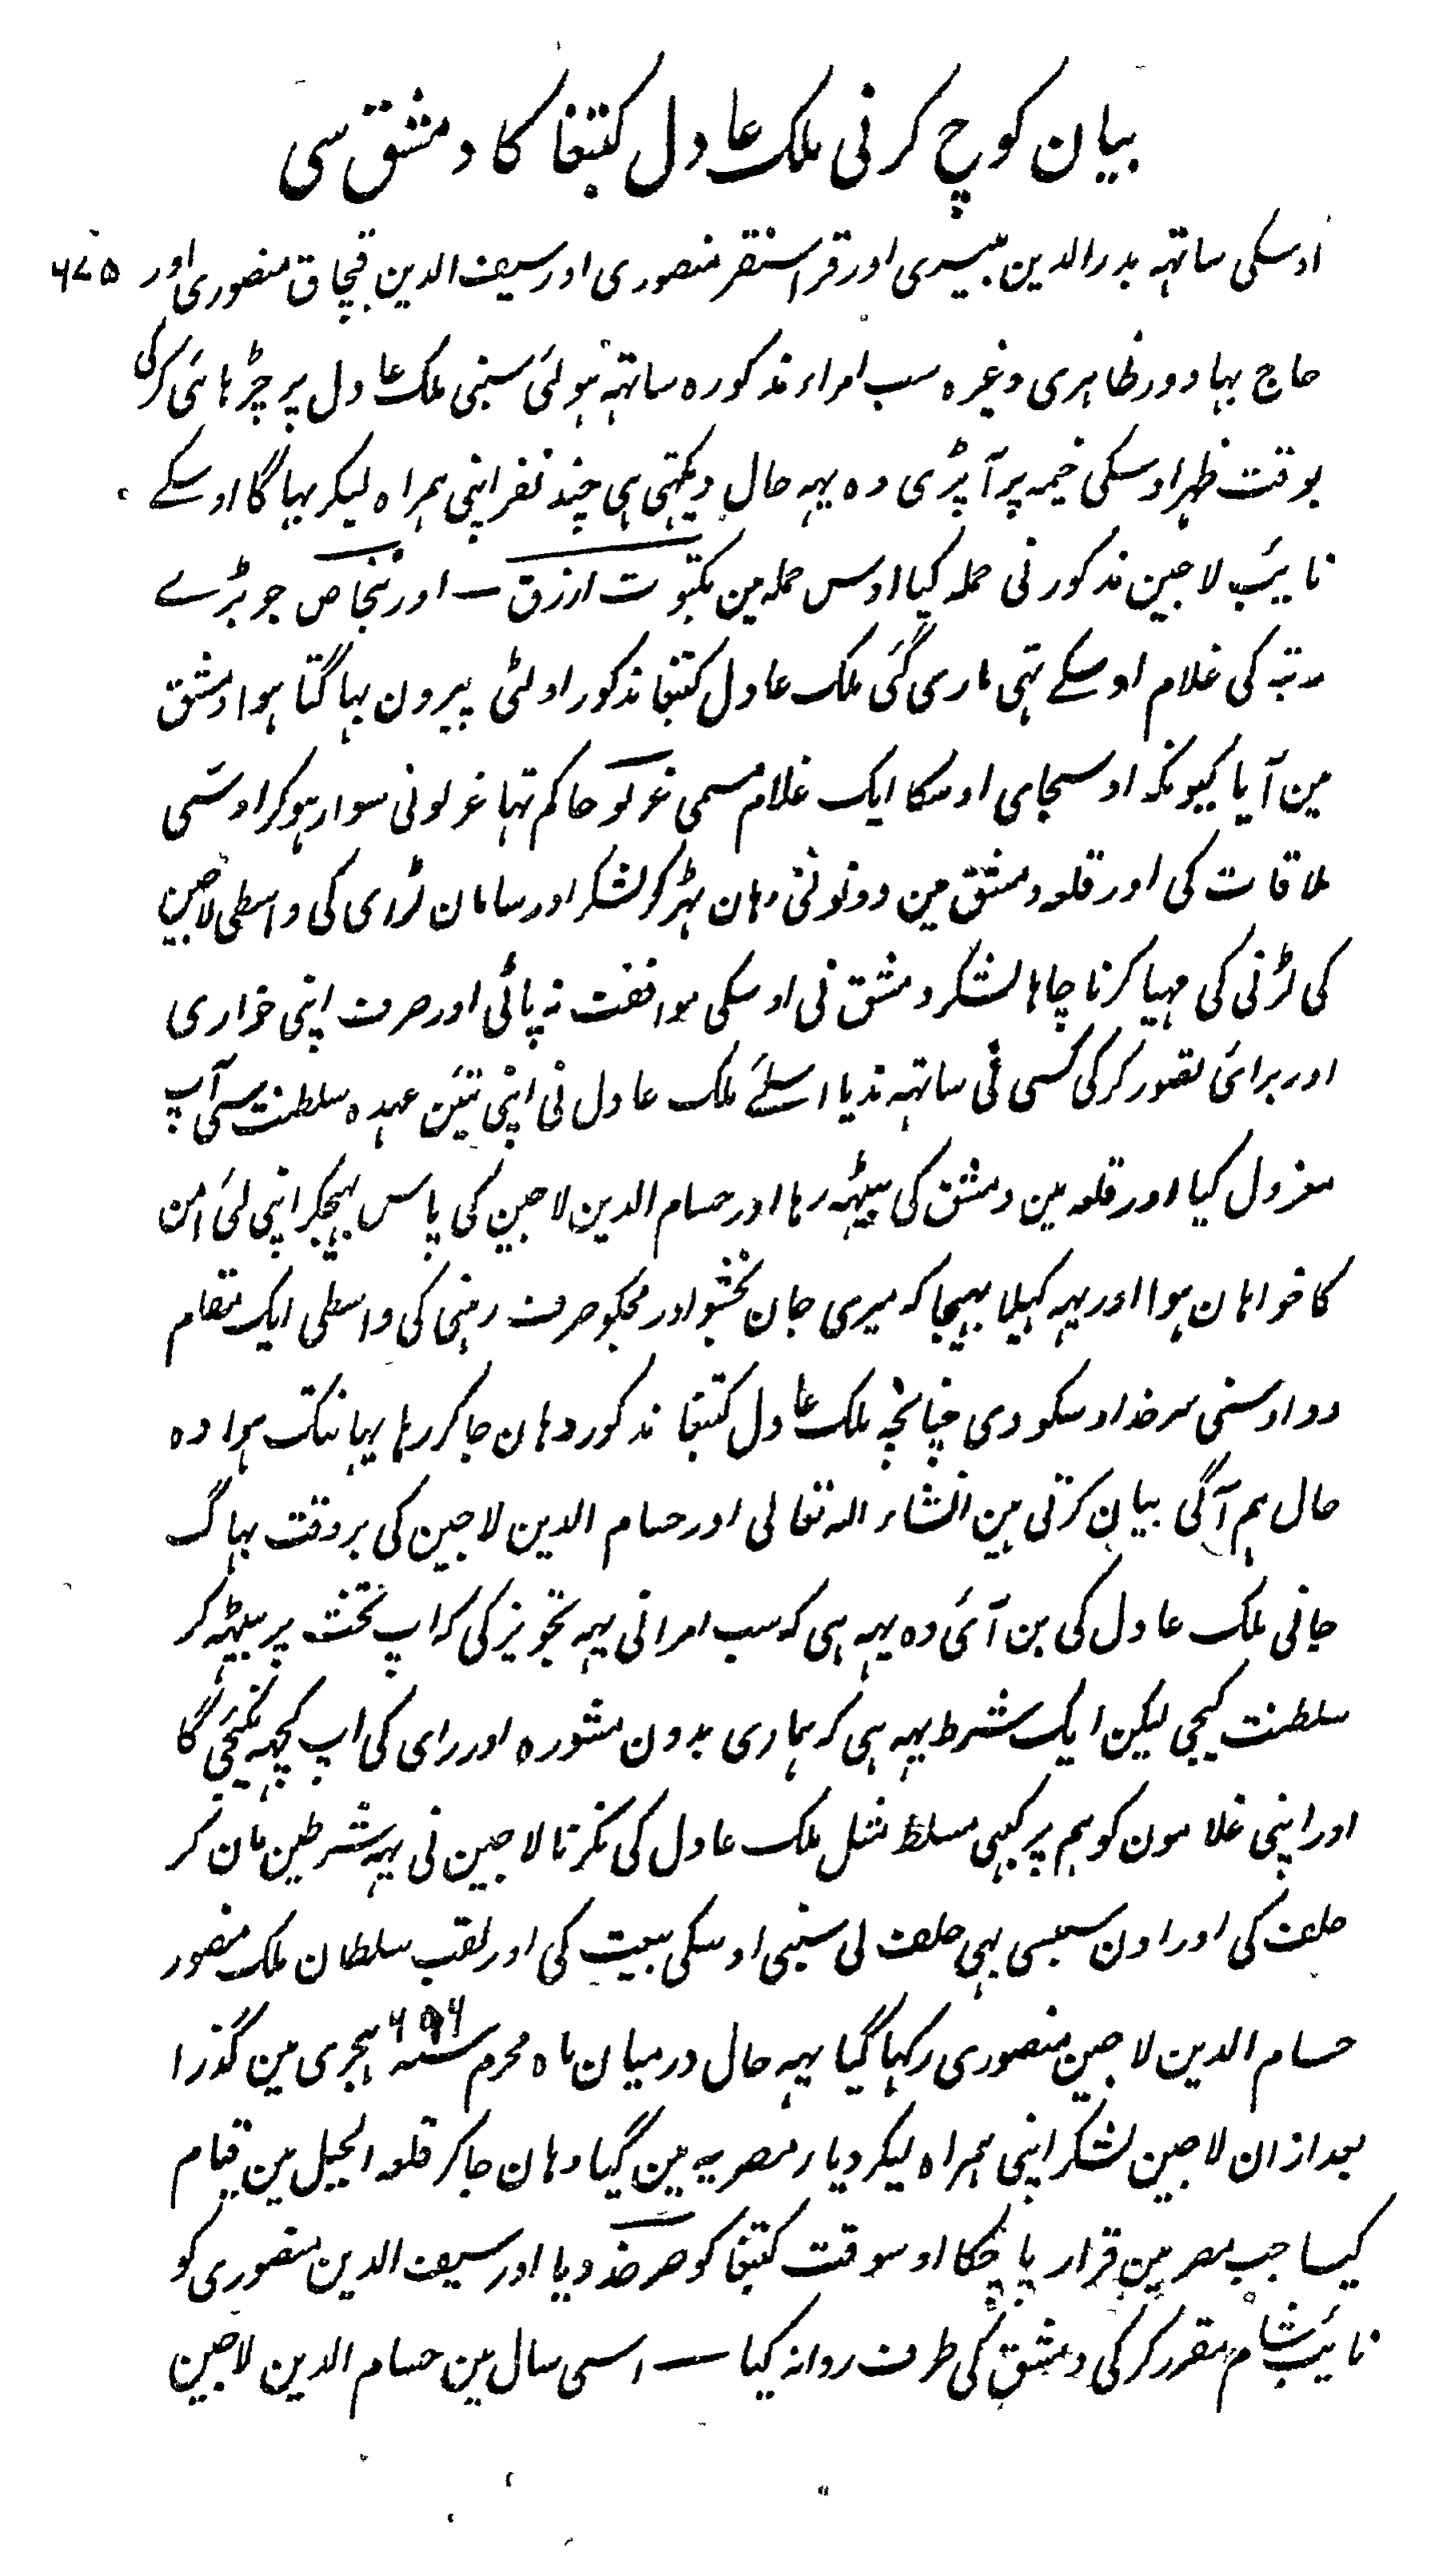 بیان کوچ کرنی ملک عادل کتبغا کا دمشق سی
اوسکی ساتہہ بدرالدین بیسری اور قراسنقر منصوری اور سیف الدین قپچاق منصوری اور ۶۷۵
حاج بہادور ظاہری وغیرہ سب امراء مذکورہ ساتہہ ہولئی سبنی ملک عادل پر چڑہائی کرکی
بوقت ظہر اوسکی خیمہ پر آپڑی وہ یہہ حال دیکہتی ہی چند نفر اپنی ہمراہ لیکر بہاگا اوسکے
نایٔب لاجین مذکور نی حملہ کیا اوس حملہ مین بکتوت ازرق — اور بنجاص جو بڑے
رتبہ کی غلام اوسکے تہی ماری گئی ملک عادل کتبغا مذکور اولٹی پیرون بہاگتا ہوا دمشق
مین آیا کیونکہ اوسجای اوسکا ایک غلام مسمی غرلو حاکم تہا غرلونی سوار ہوکر اوسّی
ملاقات کی اور قلعہ دمشق مین دونونی وہان ٹہر کو لشکر اور سامان لڑای کی واسطی لاجین
کی لڑنی کی مہیا کرنا چاہا لشکر دمشق نی اوسکی موافقت نہ پائی اور صرف اپنی خواری
اور برائی تصور کرکی کسی نی ساتہہ ندیا اسلئے ملک عادل نی اپنی تئین عہدہ سلطنت سی آپ
معزول کیا اور قلعہ مین دمشق کی بیٹہہ رہا اور حسام الدین لاجین کی پاس بہیجکر اپنی لئی امن
کا خواہان ہوا اور یہہ کہیلا بہیجا کہ میری جان بخشو اور مجکو صرف رہنی کی واسطی ایک مقام
دو اوسنی سرخد اوسکو دی چنانچہ ملک عادل کتبغا مذکور وہان جا کر رہا یہانتک ہوا وہ
حال ہم آگی بیان کرتی ہین انشاء اللہ تعالی اور حسام الدین لاجین کی بروقت بہاگ
جانی ملک عادل کی بن آئی وہ یہہ ہی کہ سب امرانی یہہ تجویز کی کہ اپ تخت پر بیٹہہ کر
سلطنت کیجی لیکن ایک شرط یہہ ہی کہ ہماری بدون مشورہ اور رای کی اپ کچہہ نکیجی گا
اور اپنی غلامون کو ہم پر کبہی مسلط مثل ملک عادل کی نکرنا لاجین نی یہہ شرطین مان کر
حلف کی اور اون سبسی بہی حلف لی سبنی اوسکی بیعت کی اور لقب سلطان ملک منصور
حسام الدین لاجین منصوری رکہا گیا یہہ حال درمیان ماہ محرم سنہ ۶۹۶ ہجری مین گذرا
بعد ازان لاجین لشکر اپنی ہمراہ لیکر دیار مصریہ مین گیا وہان جاکر قلعہ الجبل مین قیام
کیسا جب مصر مین قرار پا چکا اوسوقت کتبغا کو صرخد دیا اور سیف الدین منصوری کو
نائب شام مقرر کرکی دمشق کی طرف روانہ کیا — اسی سال مین حسام الدین لاجین